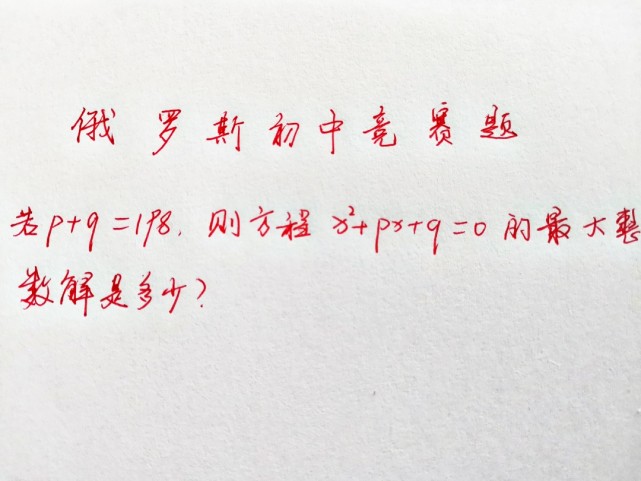 俄罗斯初中竞赛题
若p+q=198,则方程x²+px+q=0的最大整
数解是多少?